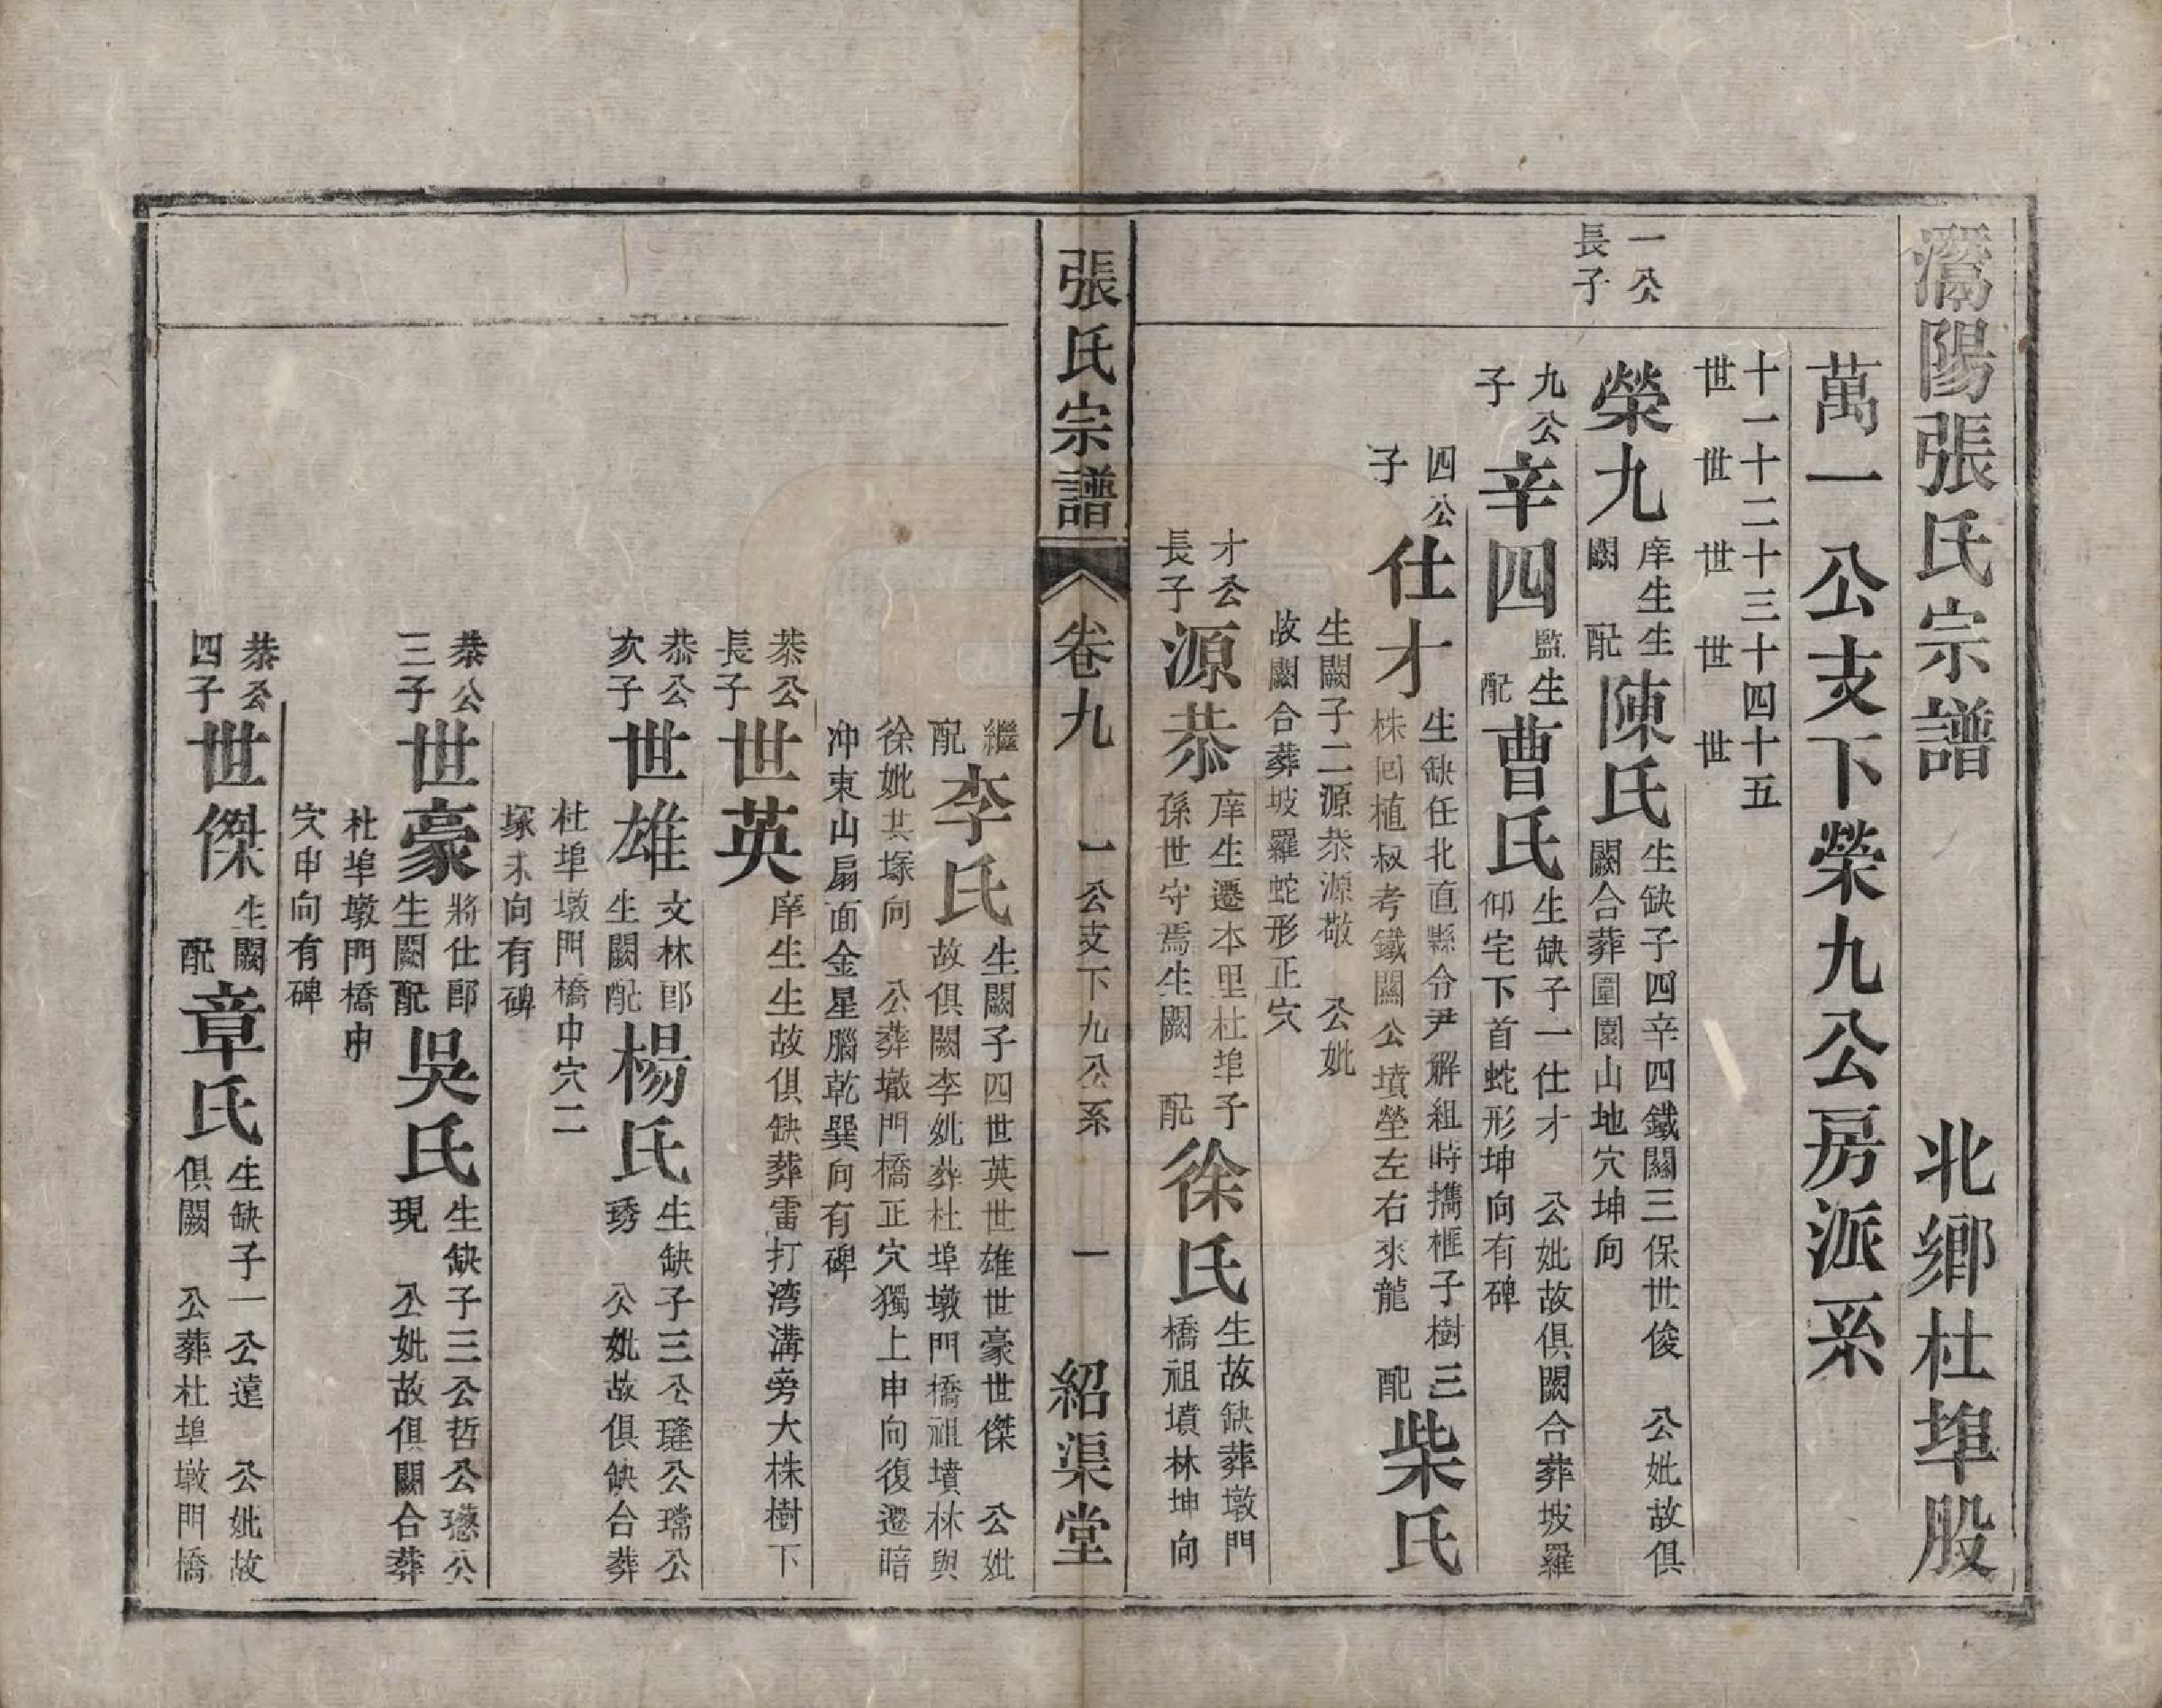 灊陽張氏宗譜　北鄉杜埠股
萬一公支下榮九公房派系
十一世　十二世　十三世　十四世　十五世
一公長子
榮九　庠生生闕　配陳氏　生缺子四辛四鐵關三保世俊　公妣故俱闕合葬圍園山地穴坤向
九公子　辛四　監生　配曹氏　生缺子一仕才　公妣故俱闕合葬坡羅仰宅下首蛇形坤向有碑
四公子　仕才　生缺任北直縣令尹解組時攜榧子樹三株回植叔考鐵關公墳塋左右來龍　配柴氏
生闕子二源恭源敬　公妣故闕合葬坡羅蛇形正穴
才公長子　源恭　庠生遷本里杜埠子孫世守焉生闕　配徐氏　生故缺葬墩門橋祖墳林坤向
張氏宗譜　卷九　一公支下九公系　一　紹渠堂
繼配李氏　生闕子四世英世雄世豪世傑　公妣故俱闕李妣葬杜埠墩門橋祖墳林與徐妣共塚向　公葬墩門橋正穴獨上申向復遷暗沖東山扇面金星腦乾巽向有碑
恭公長子　世英　庠生生故俱缺葬雷打湾溝旁大株樹下
恭公次子　世雄　文林郎生闕配楊氏　生缺子三公璉公瑺公琇　公妣故俱缺合葬杜埠墩門橋中穴二塚未向有碑
恭公三子　世豪　將仕郎生闕配吳氏　生缺子三公哲公公現　公妣故俱闕合葬杜埠墩門橋申穴申向有碑
恭公四子　世傑　生闕配章氏　生缺子一公遠　公妣故俱闕　公葬杜埠墩門橋